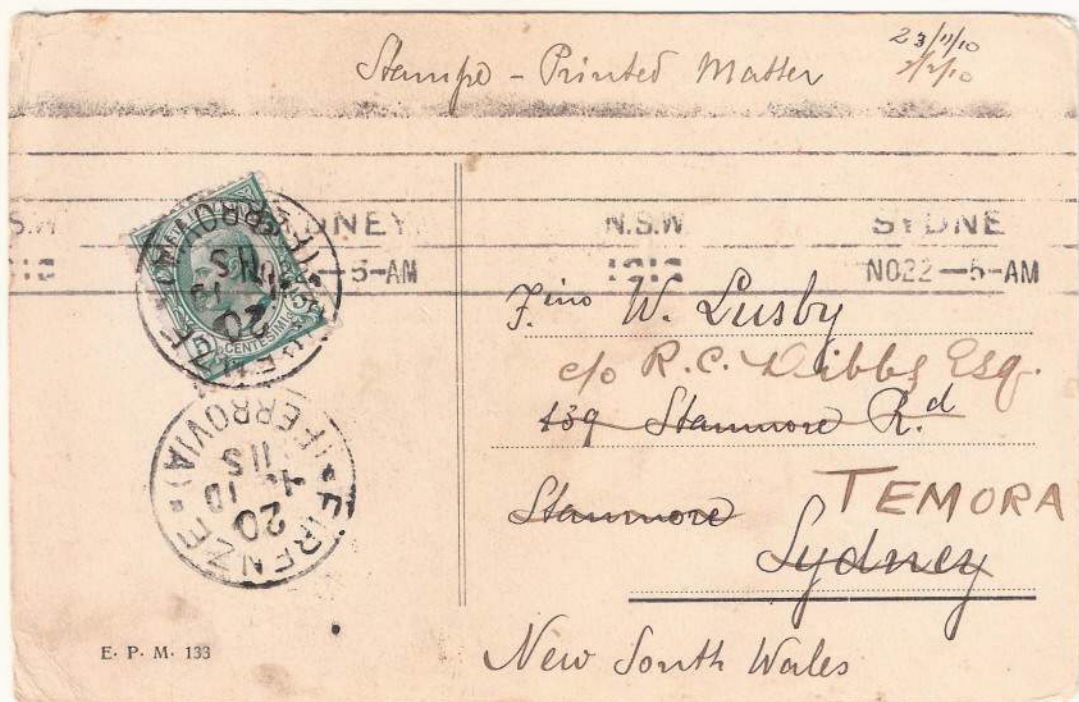 Stampe - Printed Matter
23/11/10
2/2/10
S.W SYDNEY N.S.W SYDNE
1910 5-AM 1910 NO22-5-AM
CENTESIMI
5
FIRENZE (FERROVIA)
20
11S
FIRENZE (FERROVIA)
20
10
11S
F.ino W. Lusby
c/o R.C. Dibbs Esq.
139 Stanmore R.d
Stanmore TEMORA
Sydney
New South Wales
E. P. M. 133